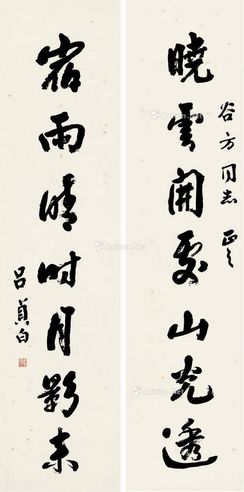 曉雲開處山光透
谷方同志 正之
宿雨晴时月影来
呂貞白